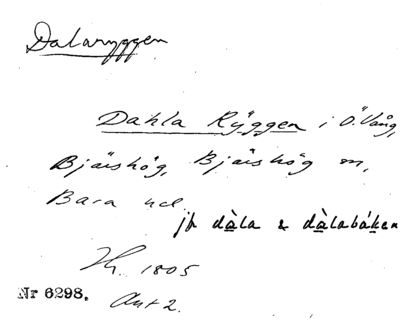 Dalaryggen
Dahla Ryggen i Ö. Vång,
Bjärshög, Bjärshög sn,
Bara hd.
jfr dàla & dàlabáken
1805
Nr 6298. Akt 2.